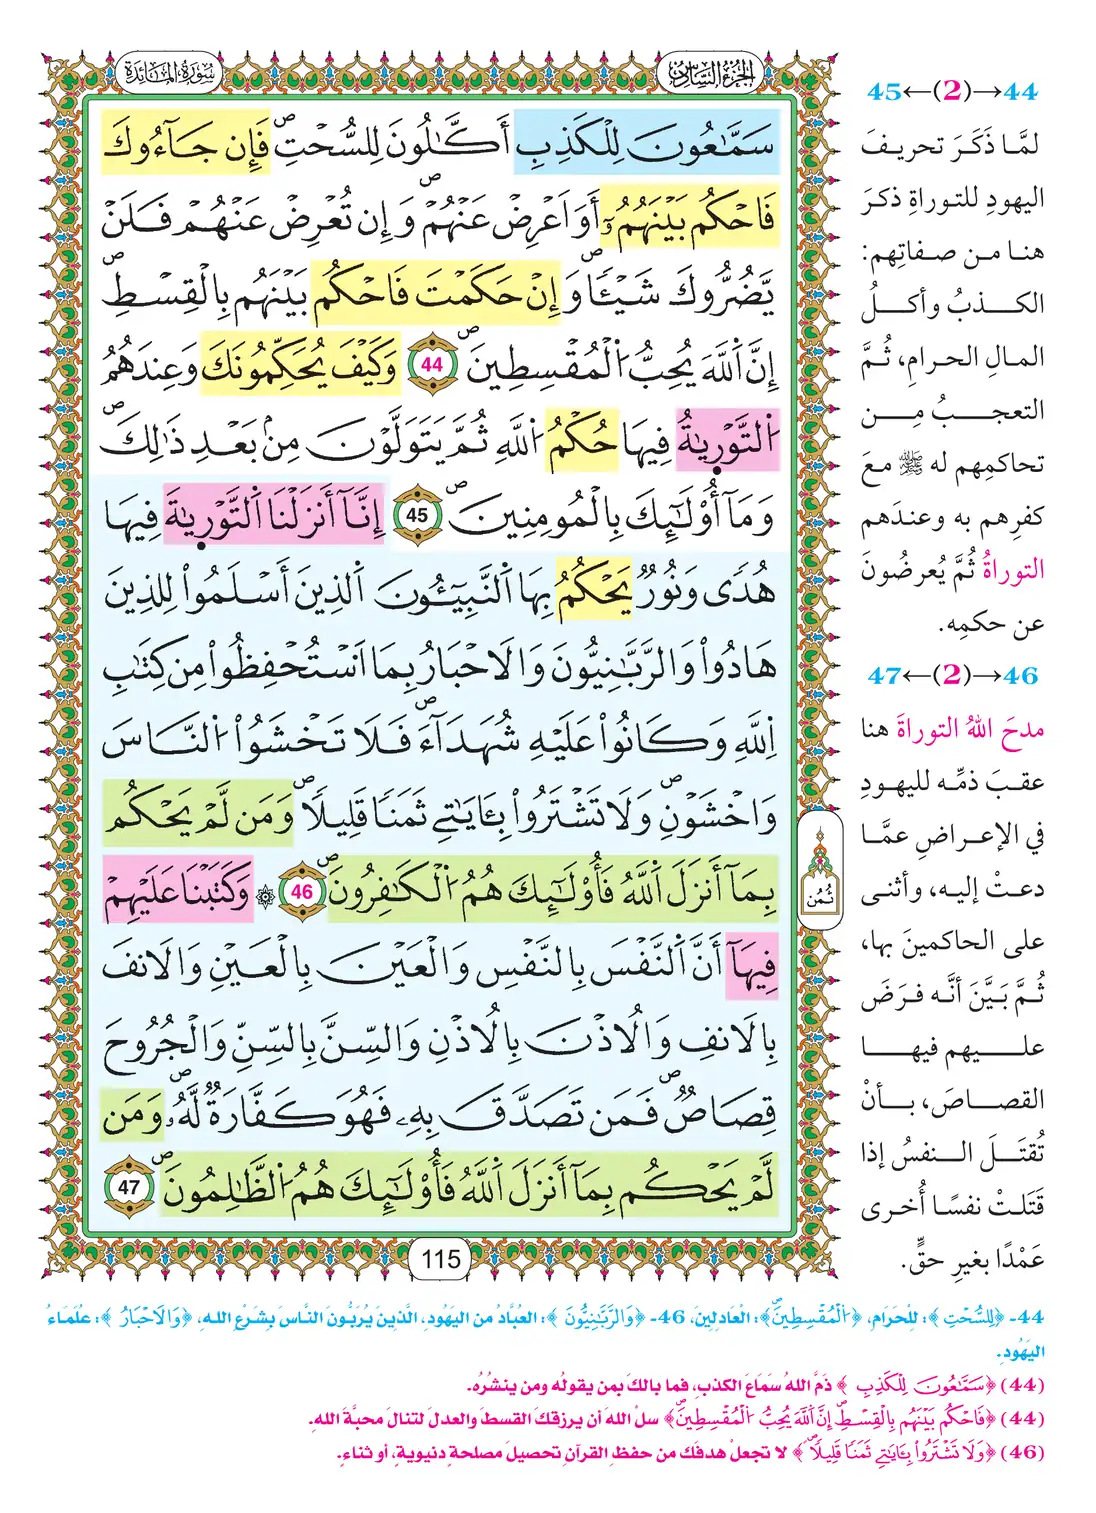 الجزء السادس
سورة المائدة
سَمَّٰعُونَ لِلْكَذِبِ أَكَّٰلُونَ لِلسُّحْتِۖ فَإِن جَآءُوكَ
فَاحْكُم بَيْنَهُمُۥٓ أَوَ اَعْرِضْ عَنْهُمْۖ وَإِن تُعْرِضْ عَنْهُمْ فَلَنْ
يَّضُرُّوكَ شَيْـٔٗاۖ وَإِنْ حَكَمْتَ فَاحْكُم بَيْنَهُم بِالْقِسْطِۖ
إِنَّ اَ۬للَّهَ يُحِبُّ اُ۬لْمُقْسِطِينَۖ 44 وَكَيْفَ يُحَكِّمُونَكَ وَعِندَهُمُ
اُ۬لتَّوْر۪ىٰةُ فِيهَا حُكْمُ اُ۬للَّهِ ثُمَّ يَتَوَلَّوْنَ مِنۢ بَعْدِ ذَٰلِكَۖ
وَمَآ أُوْلَٰٓئِكَ بِالْمُومِنِينَۖ 45 إِنَّآ أَنزَلْنَا اَ۬لتَّوْر۪ىٰةَ فِيهَا
هُدٗى وَنُورٞ يَحْكُمُ بِهَا اَ۬لنَّبِيـُٔونَ اَ۬لذِينَ أَسْلَمُواْ لِلذِينَ
هَادُواْ وَالرَّبَّٰنِيُّونَ وَالَاحْبَارُ بِمَا اَ۟سْتُحْفِظُواْ مِن كِتَٰبِ
اِ۬للَّهِ وَكَانُواْ عَلَيْهِ شُهَدَآءَۖ فَلَا تَخْشَوُاْ اُ۬لنَّاسَ
وَاخْشَوْنِۖ وَلَا تَشْتَرُواْ بِـَٔايَٰتِے ثَمَنٗا قَلِيلٗاۖ وَمَن لَّمْ يَحْكُم
بِمَآ أَنزَلَ اَ۬للَّهُ فَأُوْلَٰٓئِكَ هُمُ اُ۬لْكَٰفِرُونَۖ 46 ۞ وَكَتَبْنَا عَلَيْهِمْ
فِيهَآ أَنَّ اَ۬لنَّفْسَ بِالنَّفْسِ وَالْعَيْنَ بِالْعَيْنِ وَالَانفَ
بِالَانفِ وَالُاذْنَ بِالُاذْنِ وَالسِّنَّ بِالسِّنِّ وَالْجُرُوحَ
قِصَاصٞۖ فَمَن تَصَدَّقَ بِهِۦ فَهُوَ كَفَّارَةٞ لَّهُۥۖ وَمَن
لَّمْ يَحْكُم بِمَآ أَنزَلَ اَ۬للَّهُ فَأُوْلَٰٓئِكَ هُمُ اُ۬لظَّٰلِمُونَۖ 47
ثُمُن
115
44→(2)←45
لمَّا ذَكَرَ تحريفَ
اليهودِ للتوراةِ ذكرَ
هنا من صفاتِهم:
الكذبُ وأكلُ
المالِ الحرامِ، ثُمَّ
التعجبُ مِن
تحاكمِهم له ﷺ معَ
كفرِهم به وعندَهم
التوراةُ ثُمَّ يُعرضُونَ
عن حكمِه.
46→(2)←47
مدحَ اللهُ التوراةَ هنا
عقبَ ذمِّه لليهودِ
في الإعراضِ عمَّا
دعتْ إليه، وأثنى
على الحاكمينَ بها،
ثُمَّ بَيَّنَ أنَّه فرَضَ
عليهم فيها
القصاصَ، بأنْ
تُقتَلَ النفسُ إذا
قَتَلتْ نفسًا أُخرى
عَمْدًا بغيرِ حقٍّ.
44- ﴿لِلسُّحْتِ﴾: لِلْحَرَامِ، ﴿اُ۬لْمُقْسِطِينَۖ﴾: الْعَادِلِينَ، 46- ﴿وَالرَّبَّٰنِيُّونَ﴾: العُبَّادُ من اليَهُودِ، الَّذِينَ يُرَبُّونَ النَّاسَ بِشَرْعِ اللهِ، ﴿وَالَاحْبَارُ﴾: عُلَمَاءُ
اليَهُودِ.
(44) ﴿سَمَّٰعُونَ لِلْكَذِبِ﴾ ذمَّ اللهُ سَمَاعَ الكذبِ، فما بالكَ بمن يقولُه ومن ينشُرُه.
(44) ﴿فَاحْكُم بَيْنَهُم بِالْقِسْطِۖ إِنَّ اَ۬للَّهَ يُحِبُّ اُ۬لْمُقْسِطِينَۖ﴾ سلْ اللهَ أن يرزقكَ القسطَ والعدلَ لتنالَ محبَّةَ اللهِ.
(46) ﴿وَلَا تَشْتَرُواْ بِـَٔايَٰتِے ثَمَنٗا قَلِيلٗاۖ﴾ لا تجعلْ هدفَك من حفظِ القرآنِ تحصيلَ مصلحةٍ دنيويةٍ، أو ثناءٍ.